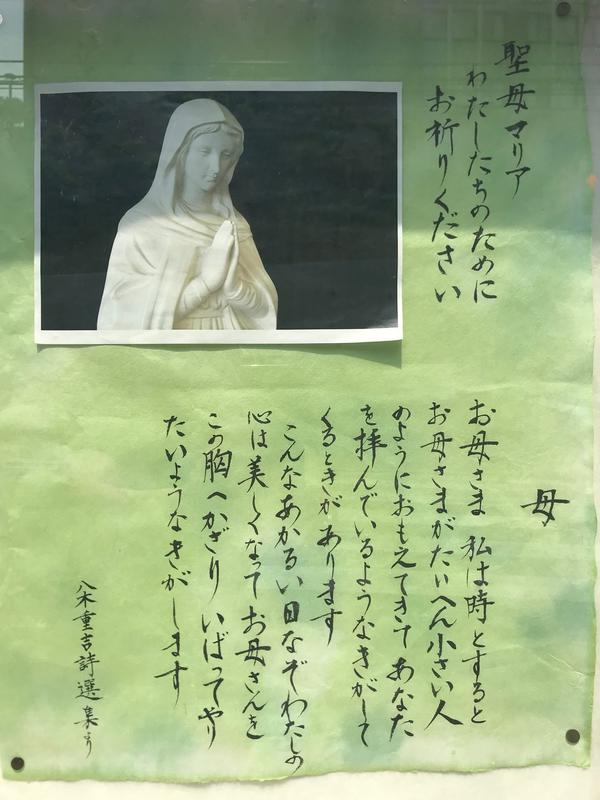 聖母マリア
わたしたちのために
お祈りください
母
お母さま 私は時とすると
お母さまがたいへん小さい人
のようにおもえてきて あなた
を拝んでいるようなきがして
くるときが あります
こんなあかるい日なぞわたしの
心は美しくなって お母さんを
この胸へかざり いばってやり
たいようなきがします
八木重吉詩選集より